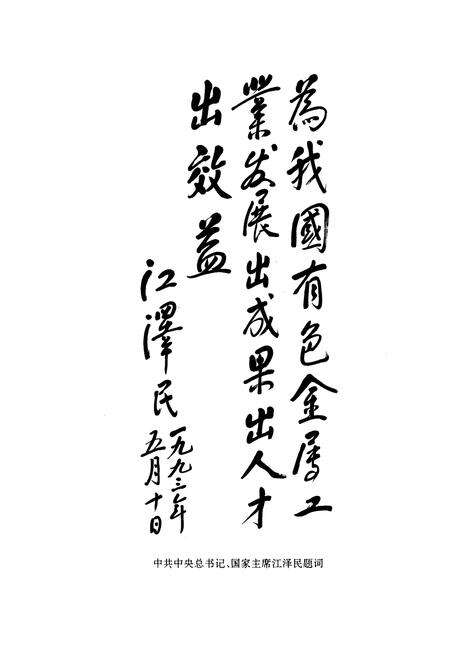 為我國有色金属工
業发展出成果出人才
出效益
江澤民
一九九三年
五月十日
中共中央总书记、国家主席江泽民题词